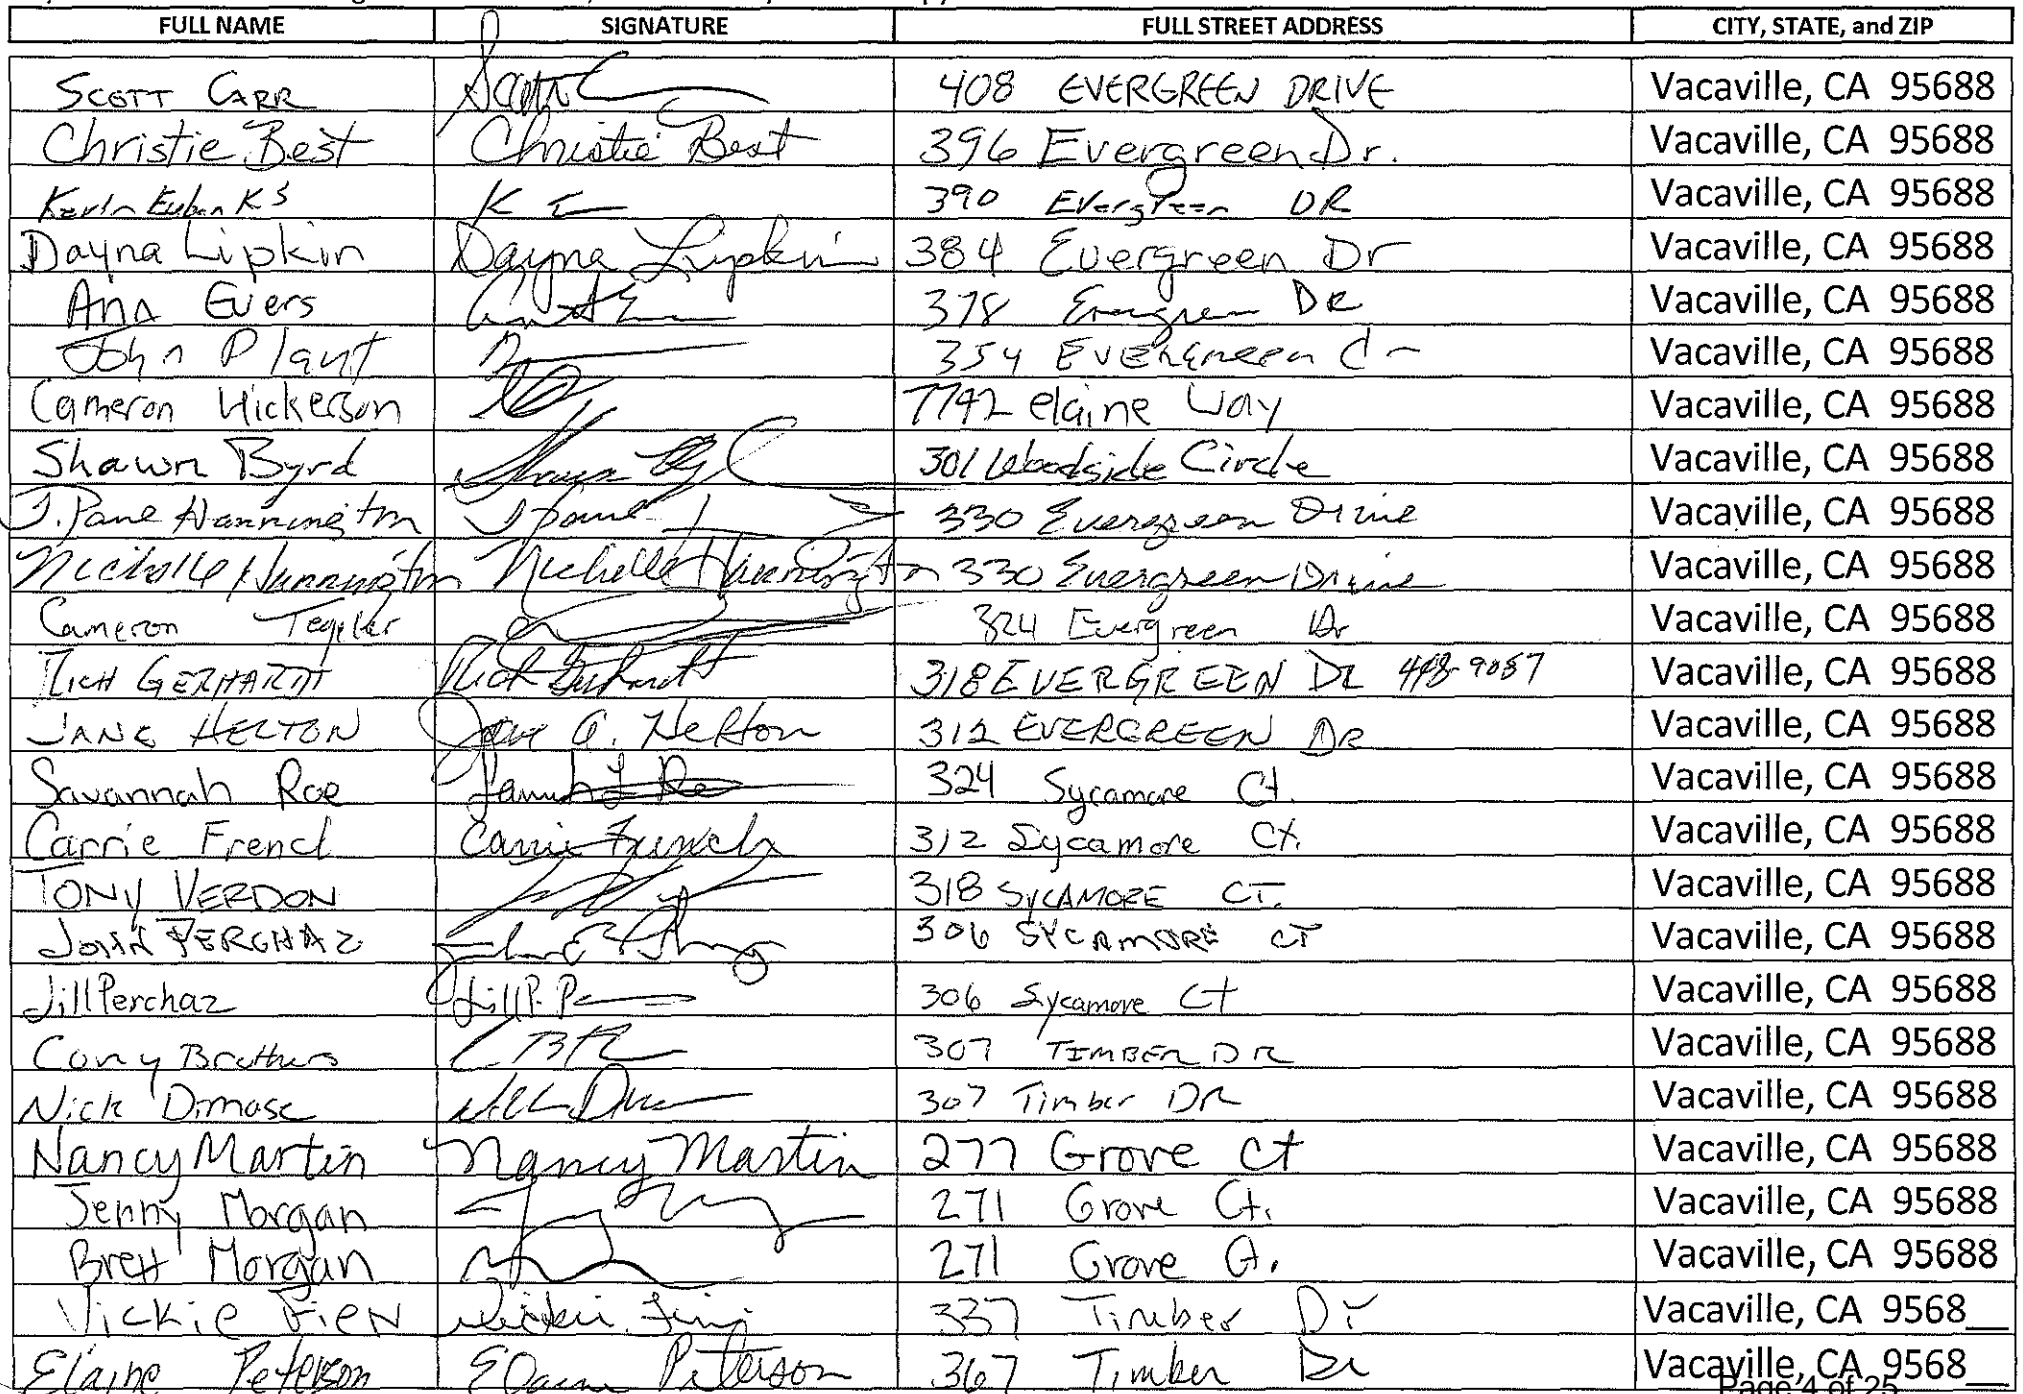 FULL NAME SIGNATURE FULL STREET ADDRESS CITY, STATE, and ZIP
SCOTT CARR 408 EVERGREEN DRIVE Vacaville, CA 95688
Christie Best Christie Best 396 Evergreen Dr. Vacaville, CA 95688
Kevin Eubanks K E 390 Evergreen DR Vacaville, CA 95688
Dayna Lipkin Dayna Lipkin 384 Evergreen Dr Vacaville, CA 95688
Ann Evers 378 Evergreen DR Vacaville, CA 95688
John Plant 354 Evergreen dr Vacaville, CA 95688
Cameron Hickerson elaine Way Vacaville, CA 95688
Shawn Byrd 301 Woodside Circle Vacaville, CA 95688
J. Pane Hannington 330 Evergreen Drive Vacaville, CA 95688
Nicholle Hannington Nicholle Hannington 330 Evergreen Drive Vacaville, CA 95688
Cameron 324 Evergreen Dr Vacaville, CA 95688
RICH GERHARDT Rich Gerhardt 318 EVERGREEN DR Vacaville, CA 95688
JANE HELTON Jane A. Helton 312 EVERGREEN DR Vacaville, CA 95688
Savannah Roe 324 Sycamore Ct. Vacaville, CA 95688
Carrie French Carrie French 312 Sycamore Ct. Vacaville, CA 95688
TONY VERDON 318 SYCAMORE CT. Vacaville, CA 95688
JOHN PERCHAZ 306 SYCAMORE CT Vacaville, CA 95688
Jill Perchaz Jill P. P 306 Sycamore Ct Vacaville, CA 95688
Cory Brothers 307 TIMBER DR Vacaville, CA 95688
Nick Dimase 307 Timber DR Vacaville, CA 95688
Nancy Martin Nancy Martin 277 Grove Ct Vacaville, CA 95688
Jenny Morgan 271 Grove Ct. Vacaville, CA 95688
Brett Morgan 271 Grove Ct. Vacaville, CA 95688
Vickie Fien 337 Timber Dr Vacaville, CA 9568__
Elaine Peterson Elaine Peterson 367 Timber Dr Vacaville, CA 9568__
Page 4 of 25